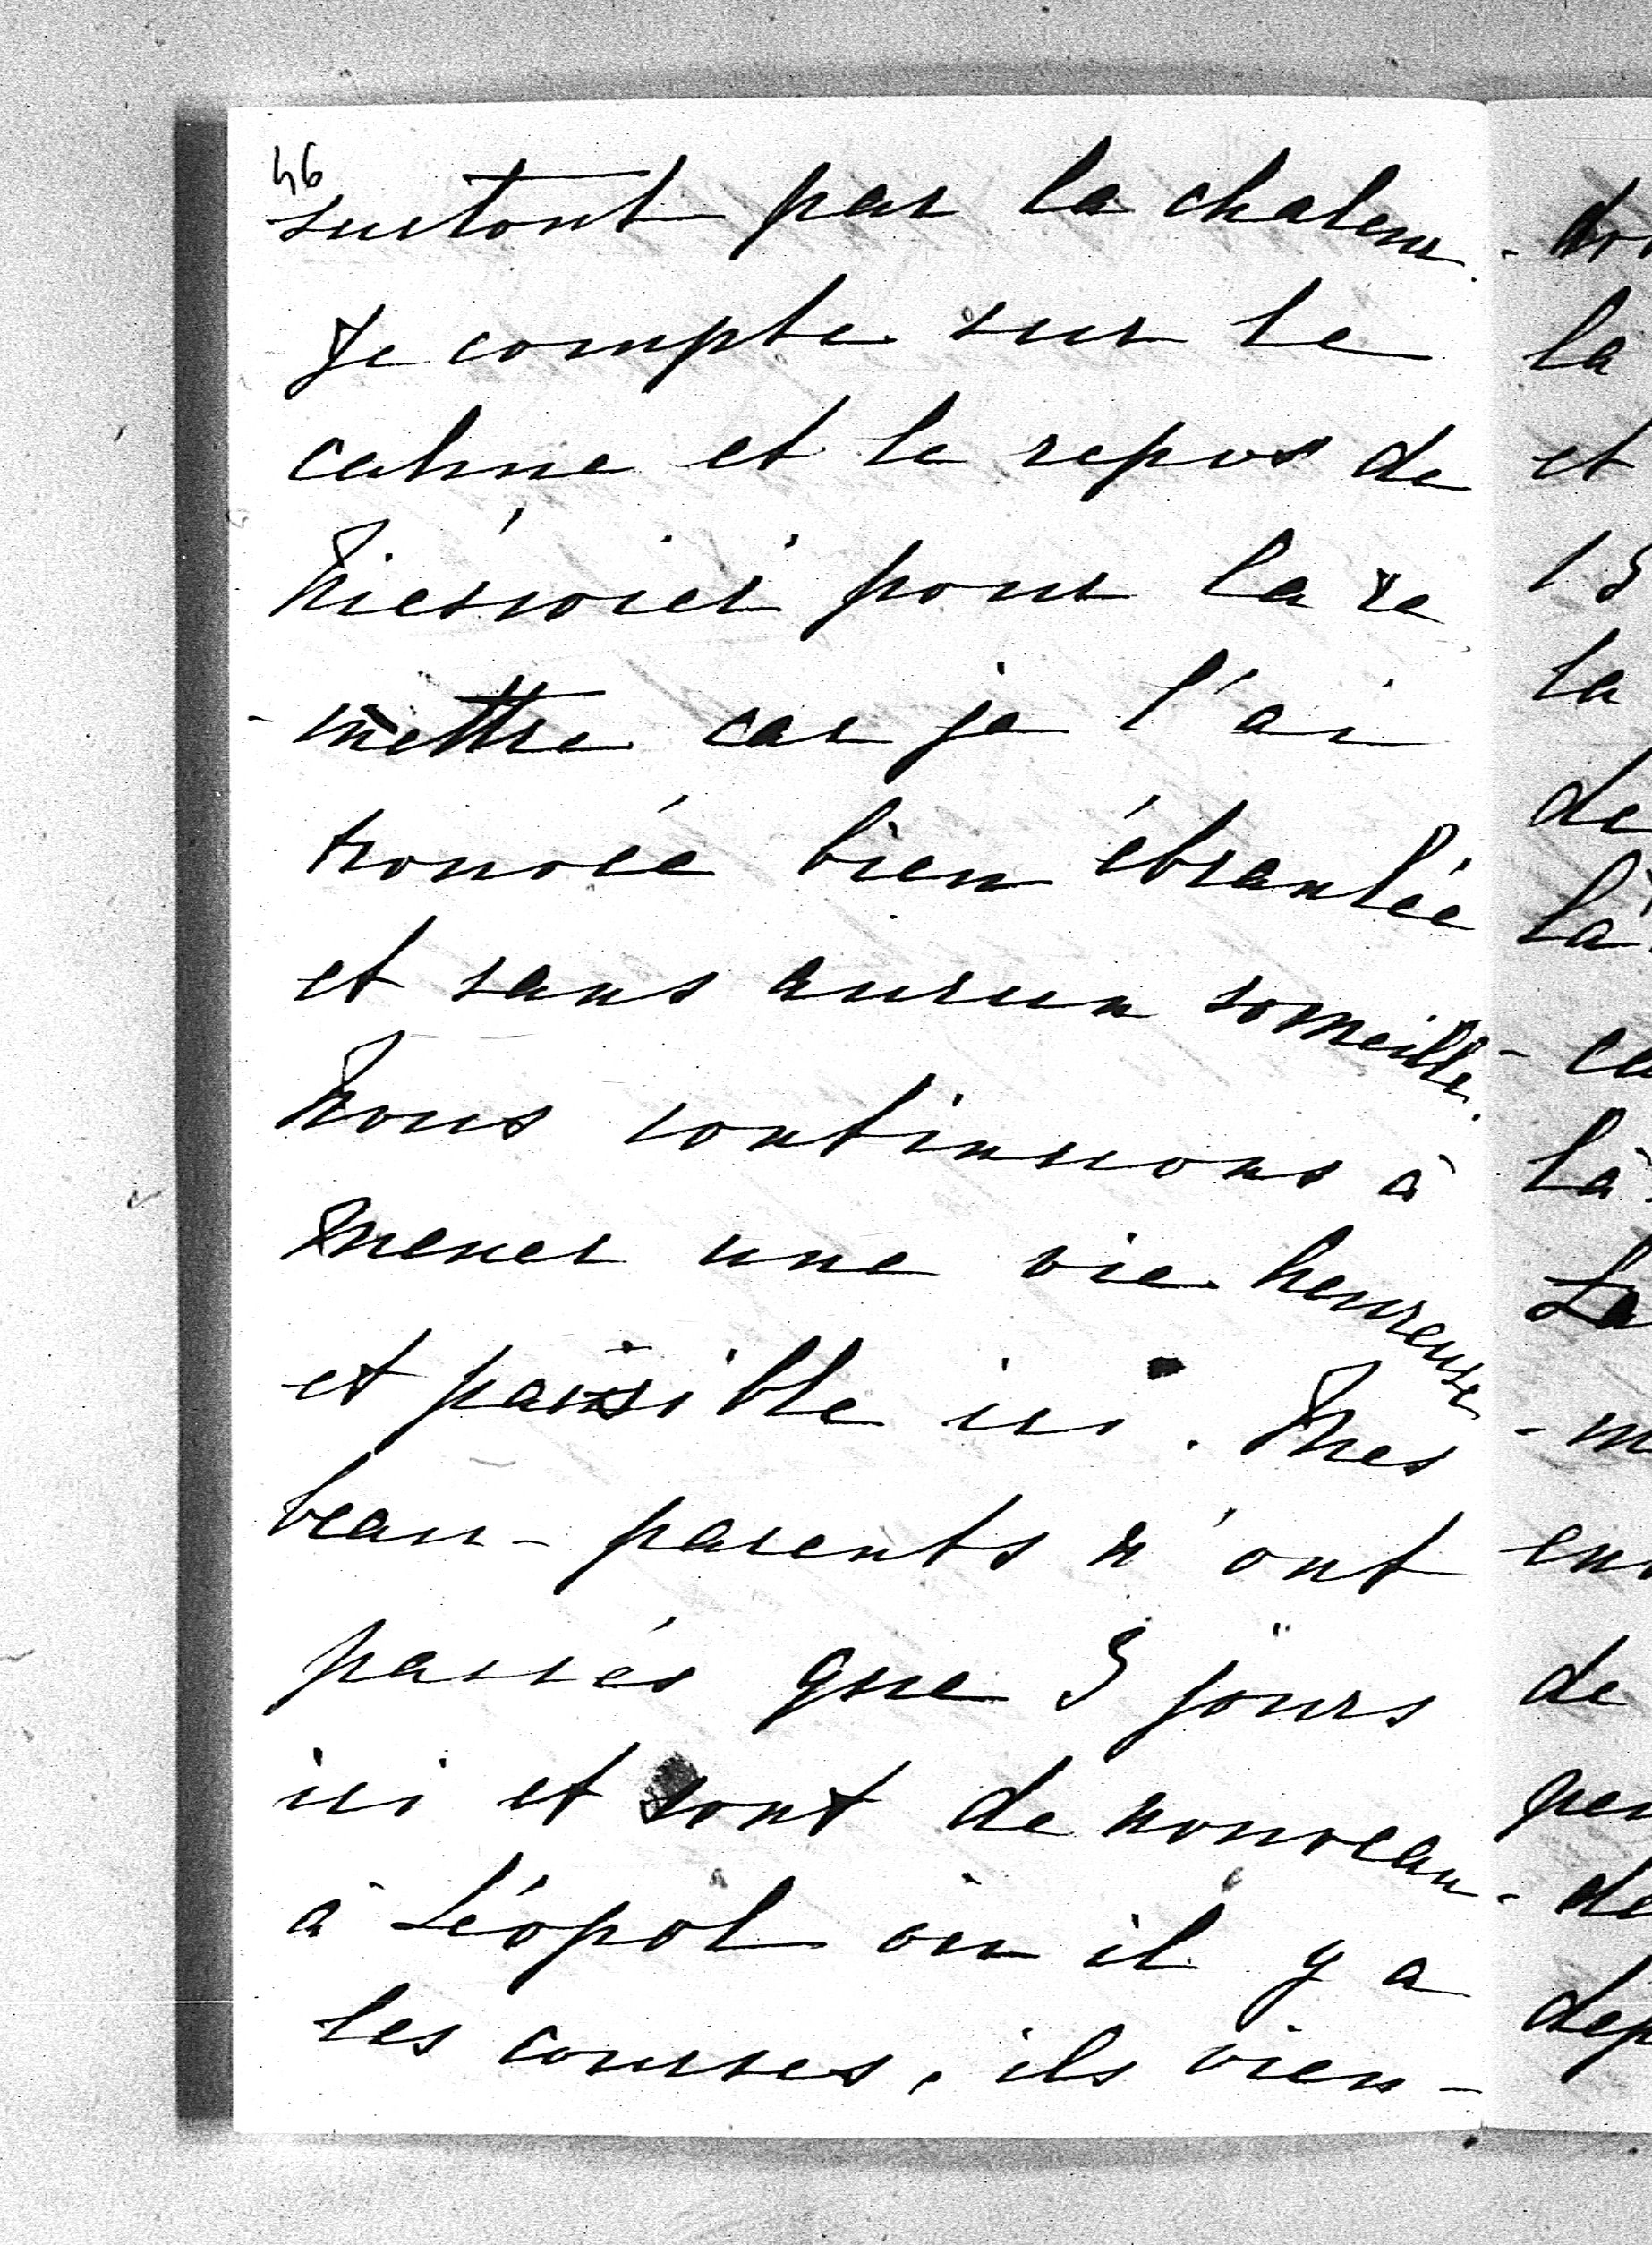 46
surtout par la chaleur.
Je compte sur le
calme et le repos de
Niesvież pour la re
-mettre car je l'ai
trouvée bien ébranlée
et sans aucun someille.
Nous continuons à
mener une vie heureuse
et paisible ici. Mes
beau-parents n'ont
passés que 3 jours
ici et sont de nouveau
à Léopol où il y a
les courses, ils vien-
la
et
la
de
là
là
La
de